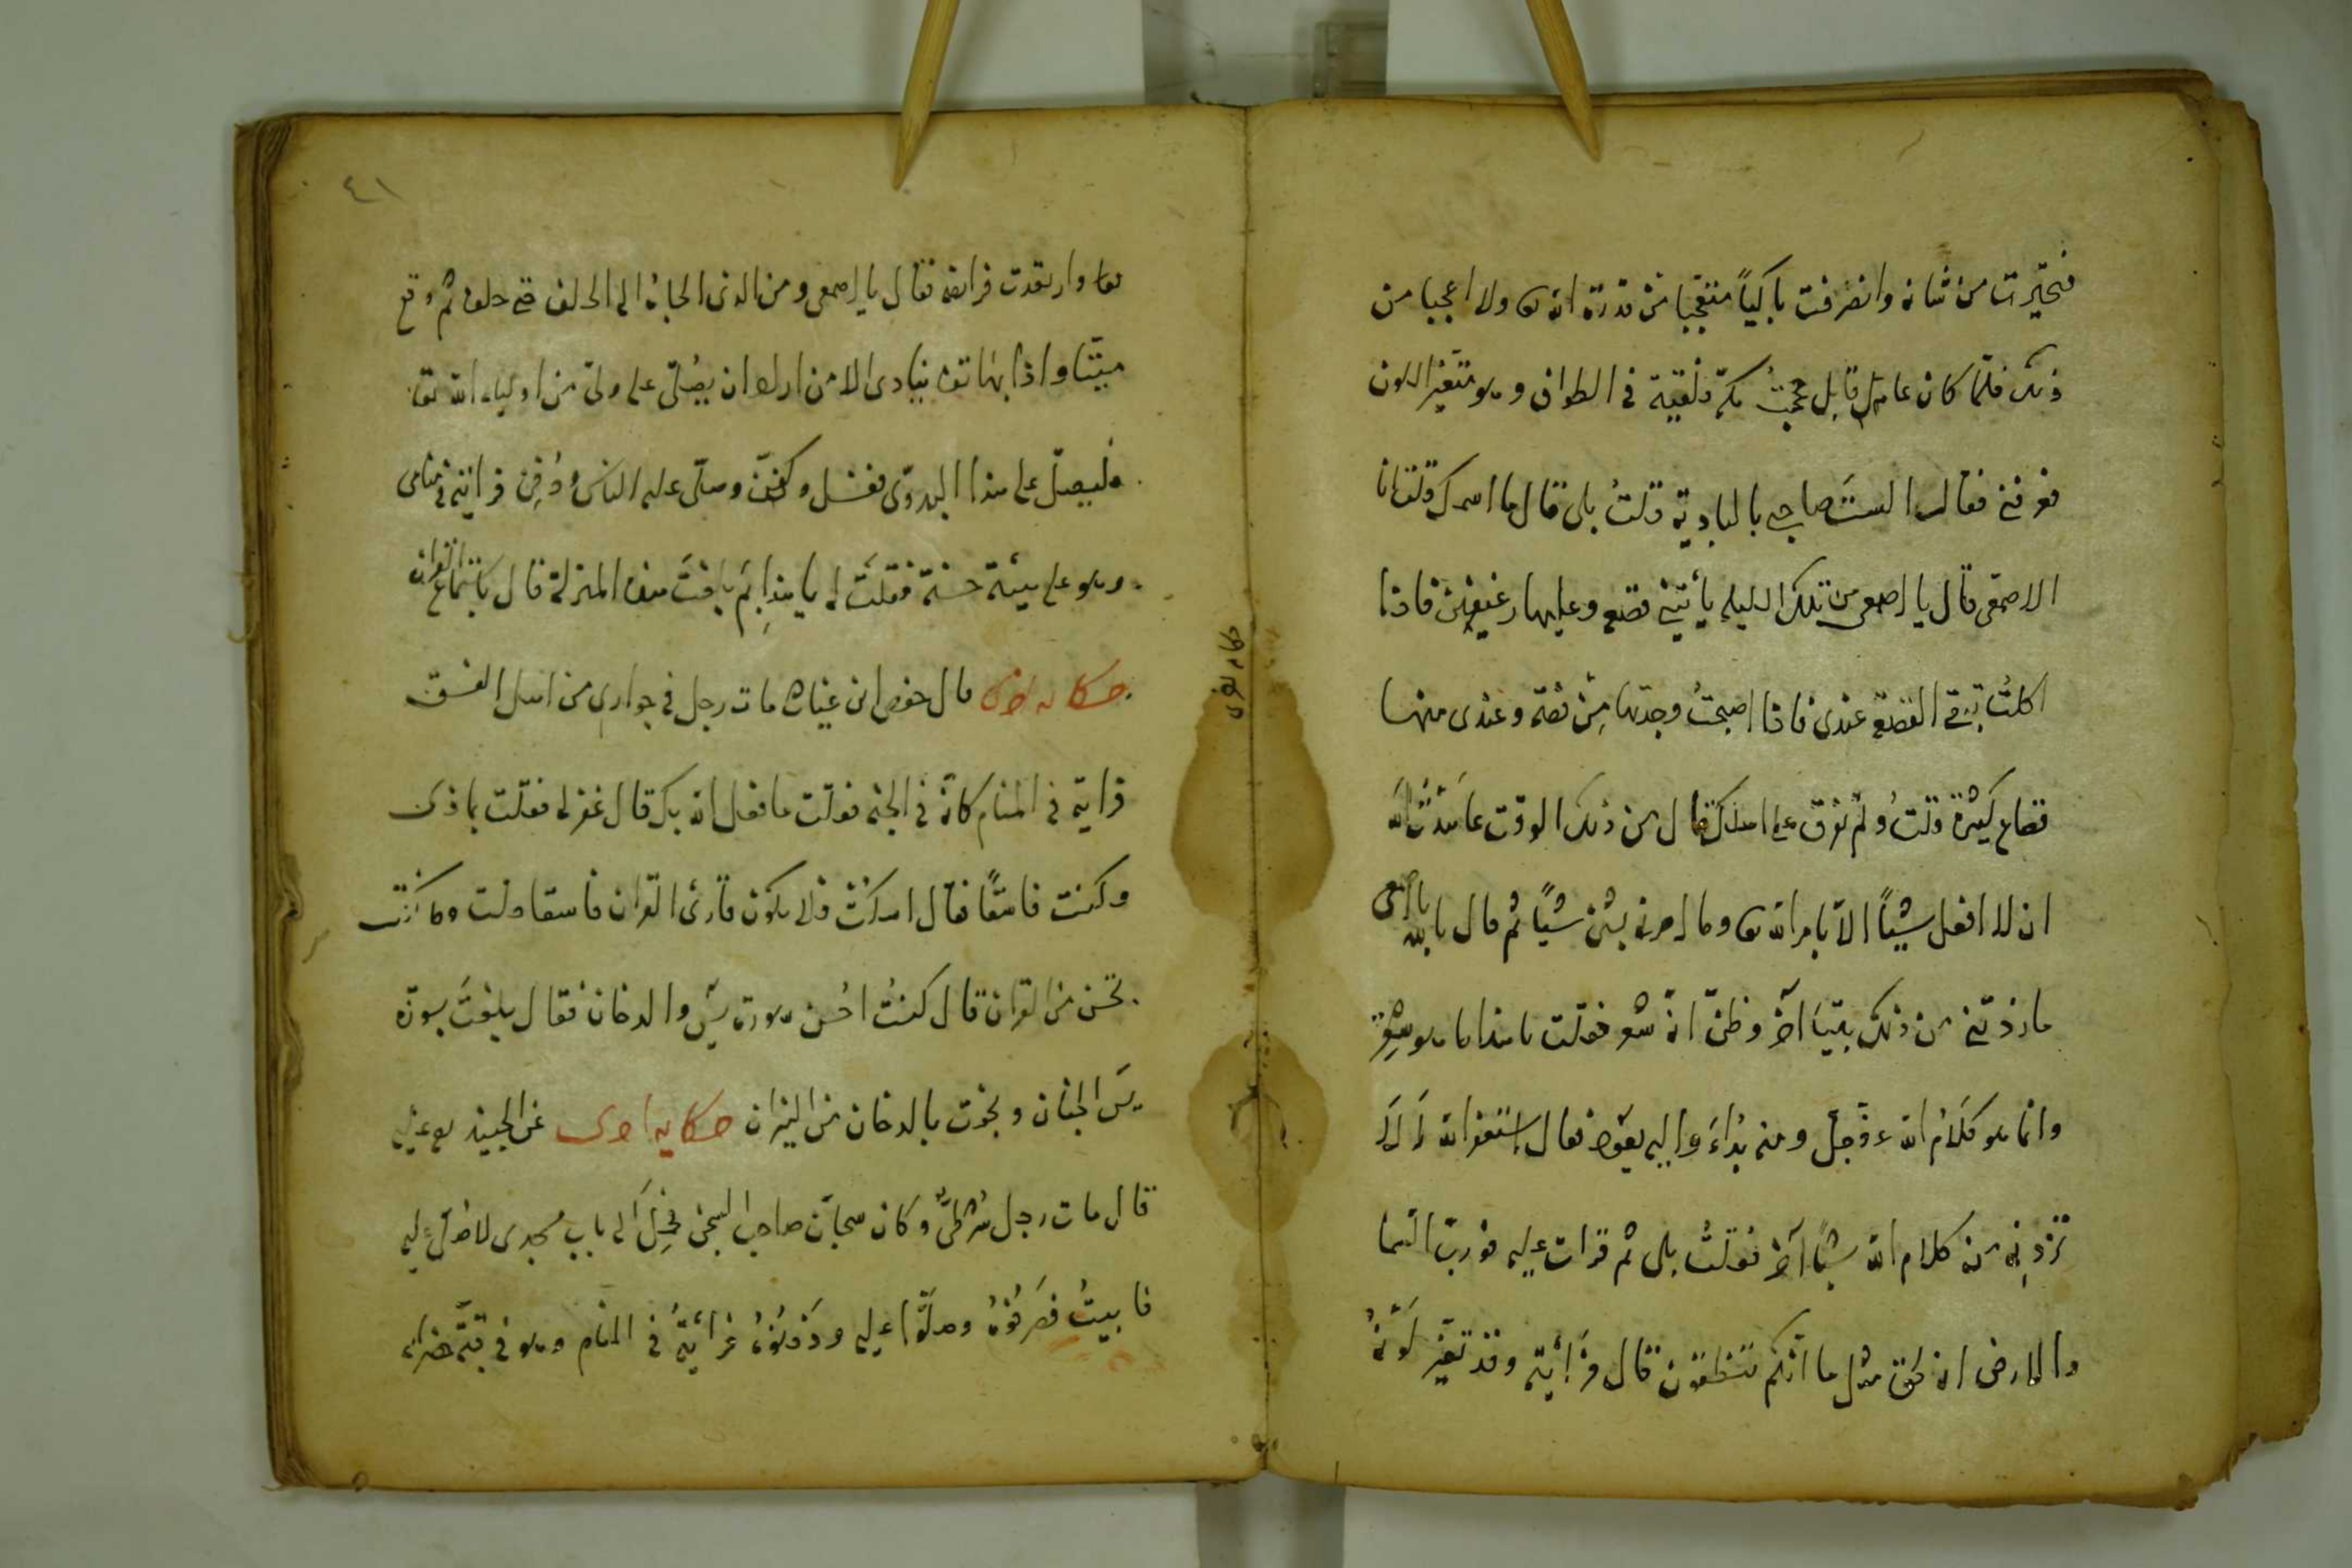 فتحيّرت من شانه وانصرفت باكياً متعجّبا من قدرة الله تع ولا اعجبا من
ذلك فلمّا كان عام قابل حججتُ مكّة فلقيته في الطواف وهو متغيّر اللون
فعرفني فقال الستَ صاحبى بالبادية قلتُ بلى قال ما اسمك قلت انا
الاصمعى قال يا اصمعى من تلك الليلة يأتينى قصعة وعليها رغيفين فاذا
اكلتُ تبقى القصعة عندى فاذا اصبحتُ وجدتها مِن فضّة وعندى منها
قصاع كثيرة قلتُ ولم تفرق على اهلك قال من ذلك الوقت عاهدتُ الله
ان لا افعل شيئاً الاّ بامر الله تع وما امرنى بشئ شيئاً ثم قال بالله يا اصمعى
ما زدتنى من ذلك بيتا آخر وظنّ انه شعر فقلت يا هذا ما هو شعر
وانما هو كلام الله عزّ وجلّ ومنه بداءَ واليه يعود فقال استغفر الله اَلاَ
تزدنى من كلام الله شيئا آخر فقلتُ بلى ثم قرات عليه فورب السّما
والارض انه لحق مثل ما انكم تنطقون قال فرأيته وقد تغيّر لَونُهُ
٤١
وارتعدت فرائصه فقال يا اصمعى ومن الذى الجاءه الى الحلف حتى حلف ثم وقع
ميّتا واذا بهاتف ينادى الا من اراد ان يصلى على ولىّ من اولياء الله تعا
فليصلّ على هذا البدوىّ فغسل وكفّن وصلّى عليه الناس ودُفِن فرايته فى منامى
وهو على هيئة حسنة فقلتَ له يا هذا بِمَ بلغتَ هذه المنزلة قال باستماع القران
حكايه اخرى قال حفص ابن غياث مات رجل فى جوارى من اهل الفسق
فرايته فى المنام كانّه فى الجنه فقلت ما فعل الله بك قال غفر لى فقلت بماذى
وكنت فاسقًا فقال اسكت فلا يكون قارئ القران فاسقا قلت وما كنت
تحسن من القران قال كنتُ احُسن سورة يس والدخان فقال بلغتَ بسورة
يسَ الجنان ونجوت بالدخان من النيران حكايه اخرى عن الجنيد رح عليه
قال مات رجل شرطىٌّ وكان سجاّن صاحب السجن فحُمِلَ الى باب مسجدى لاصلّى عليه
فابيتُ فصَرفوهُ وصلّوا عليه ودَفنوُهُ فرأيتُهُ فى المنام وهو فى قبّة خضراء
حكايه اخرى